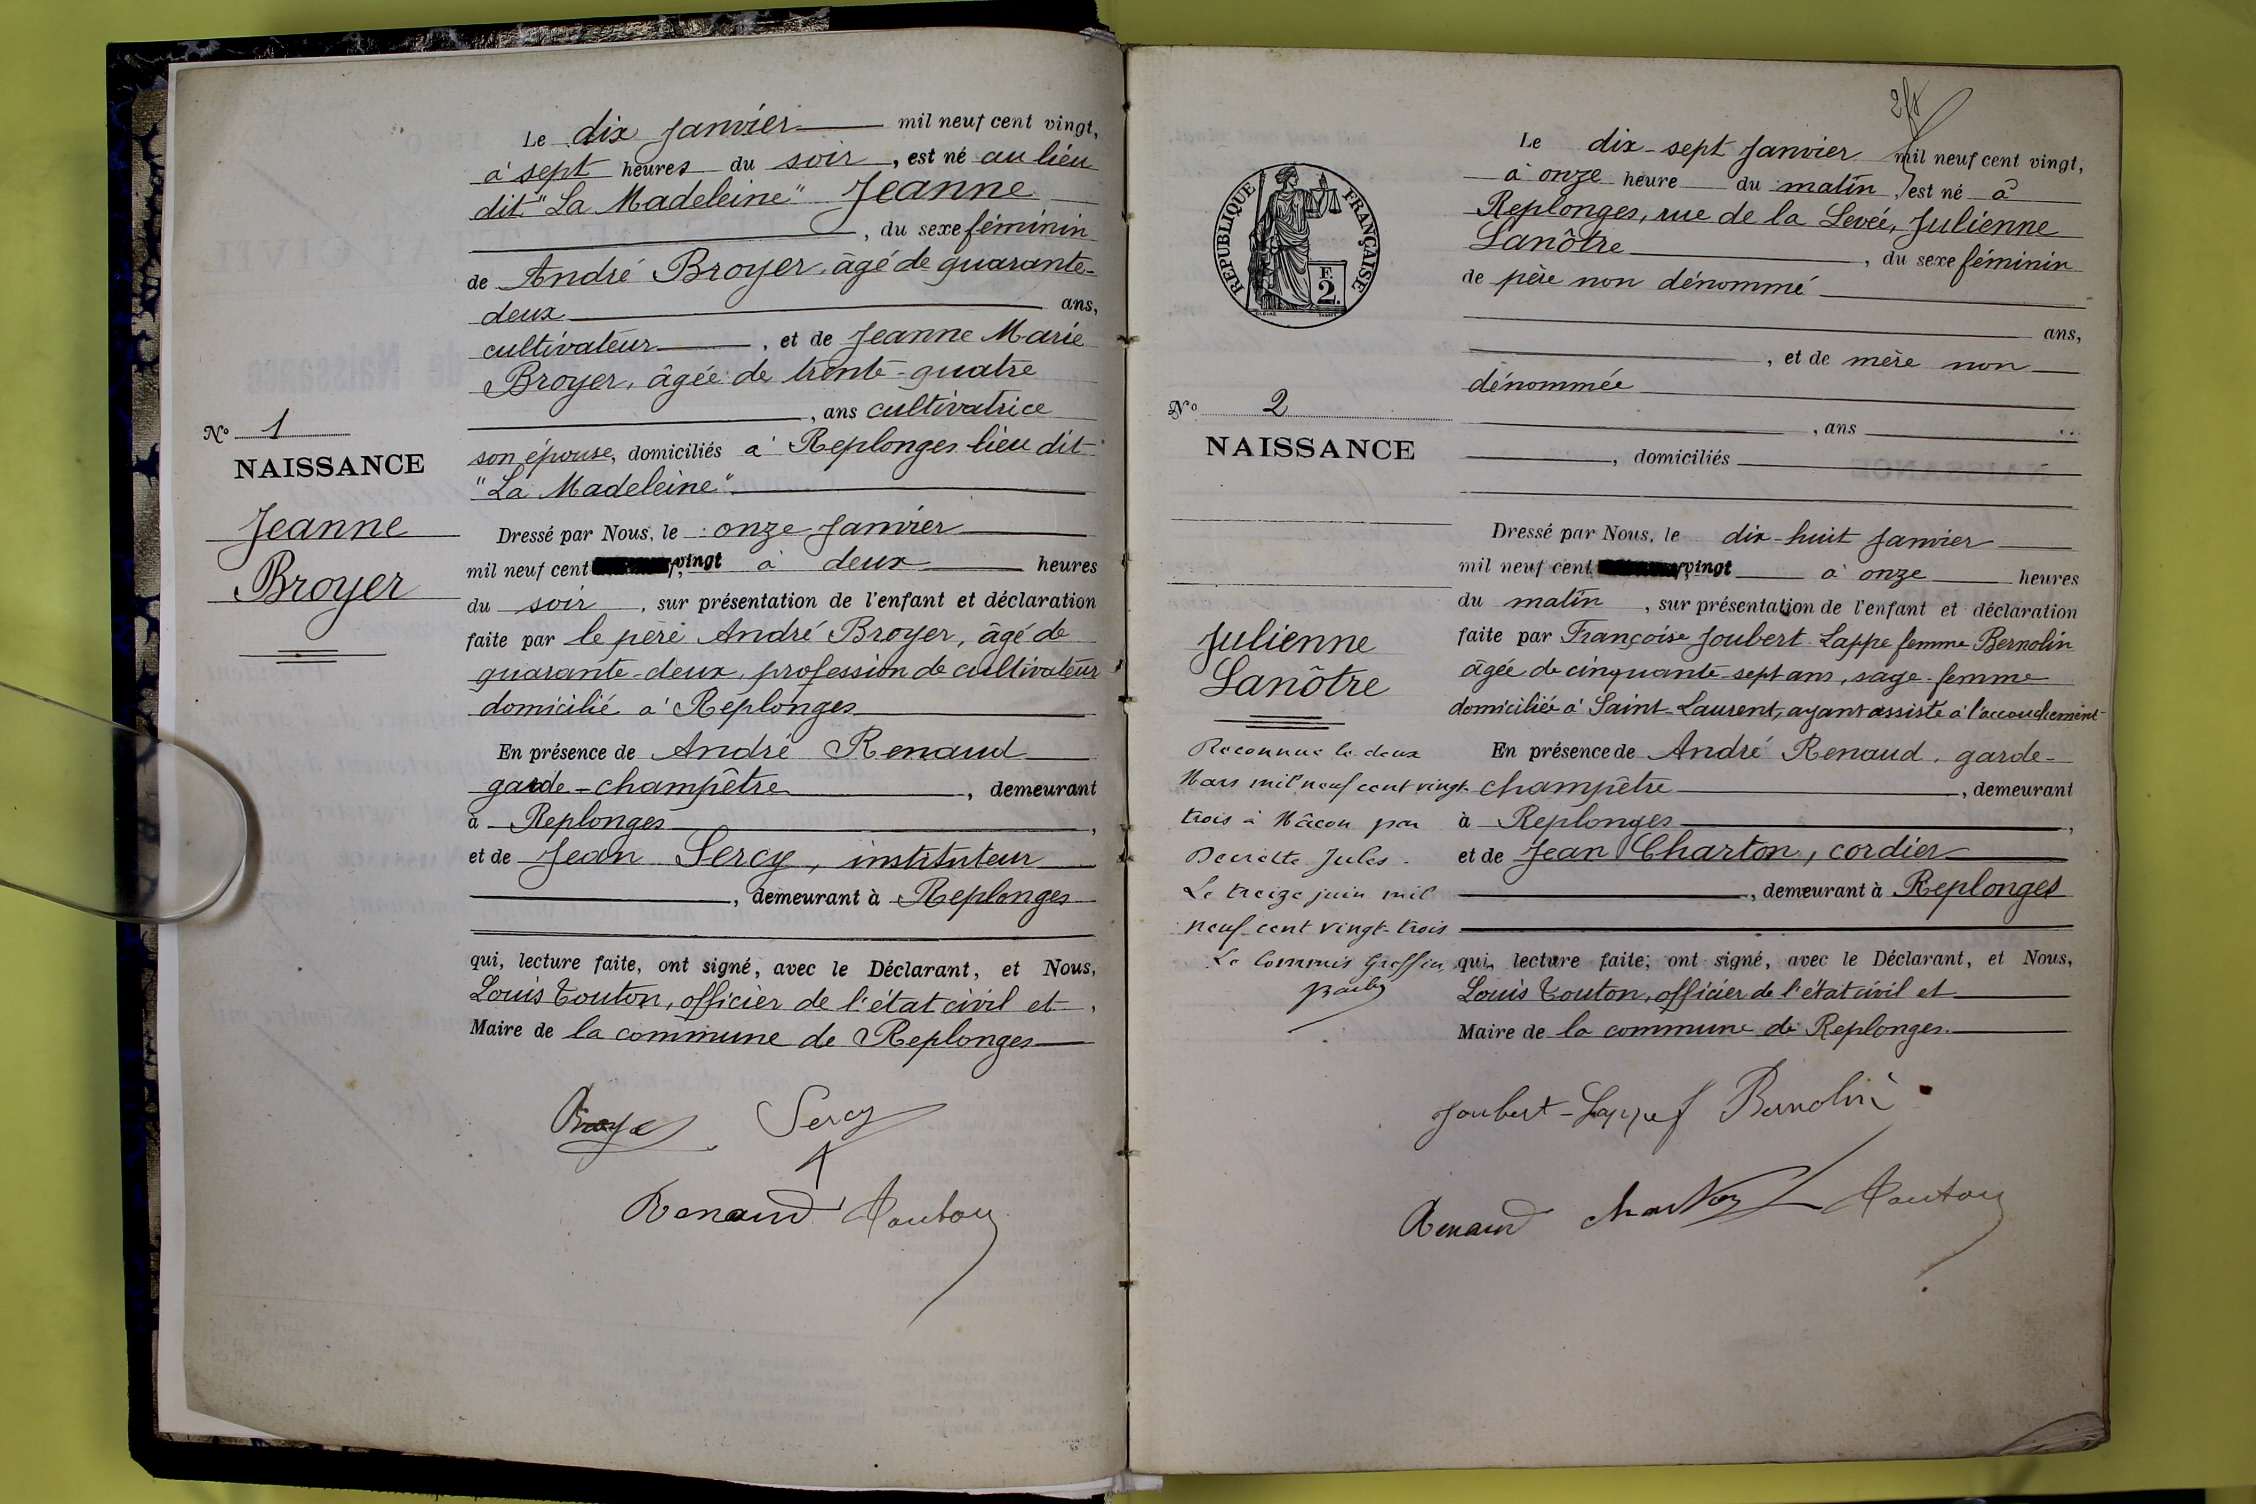 Le dix Janvier mil neuf cent vingt,
à sept heures du soir, est né au lieu
dit "La Madeleine" Jeanne
, du sexe féminin
de André Broyer, âgé de quarante-
deux ans,
cultivateur, et de Jeanne Marie
Broyer, âgée de trente-quatre
, ans cultivatrice
son épouse, domiciliés à Replonges lieu dit
"La Madeleine"
No 1
NAISSANCE
Jeanne
Broyer
Dressé par Nous, le onze Janvier
mil neuf cent vingt à deux heures
du soir, sur présentation de l'enfant et déclaration
faite par le père André Broyer, âgé de
quarante-deux, profession de cultivateur
domicilié à Replonges
En présence de André Renaud
garde-champêtre, demeurant
à Replonges,
et de Jean Sercy, instituteur
, demeurant à Replonges
qui, lecture faite, ont signé, avec le Déclarant, et Nous,
Louis Touton, officier de l'état civil et,
Maire de la commune de Replonges
Broyer Sercy
Renaud Touton
2
RÉPUBLIQUE FRANÇAISE
F.
2.
Le dix-sept Janvier mil neuf cent vingt,
à onze heure du matin, est né à
Replonges, rue de la Levée, Julienne
Lanôtre, du sexe féminin
de père non dénommé
ans,
, et de mère non
dénommée
, ans
, domiciliés
No 2
NAISSANCE
Julienne
Lanôtre
Reconnue le deux
Mars mil neuf cent vingt-
trois à Mâcon par
Jules.
Le treize juin mil
neuf cent vingt-trois
Le Commis Greffier
Dressé par Nous, le dix-huit Janvier
mil neuf cent vingt à onze heures
du matin, sur présentation de l'enfant et déclaration
faite par Françoise Joubert Lappe femme Bernolin
âgée de cinquante-sept ans, sage-femme
domiciliée à Saint-Laurent, ayant assisté à l'accouchement
En présence de André Renaud, garde-
champêtre, demeurant
à Replonges,
et de Jean Charton, cordier
, demeurant à Replonges
qui, lecture faite, ont signé, avec le Déclarant, et Nous,
Louis Touton, officier de l'état civil et
Maire de la commune de Replonges.
Joubert-Lappe f Bernolin
Renaud Charton Touton